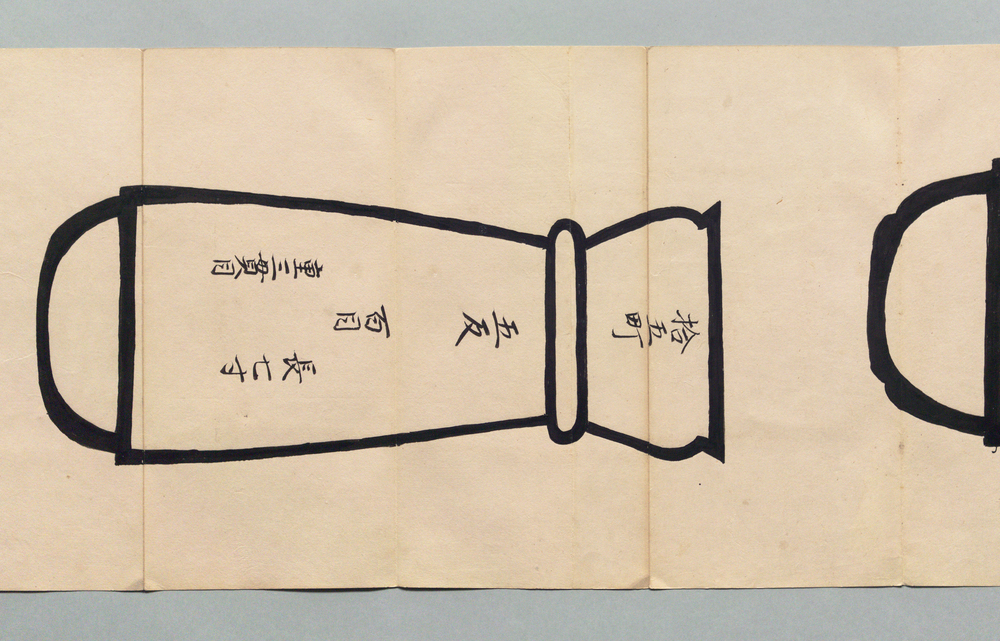 拾五町
五反
百目
長七寸
重三貫目